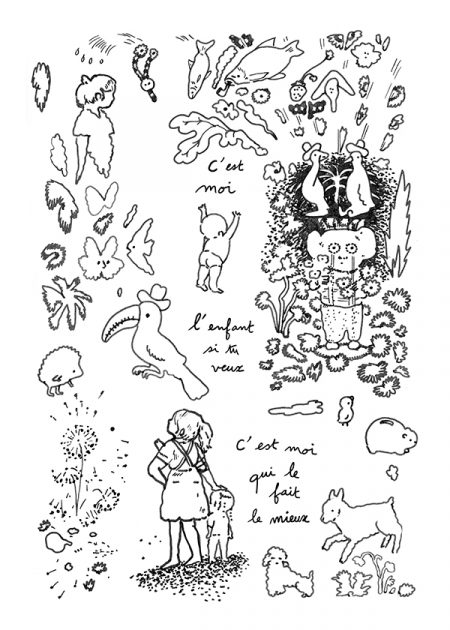 C'est
moi
l'enfant
si tu
veux
C'est moi
qui le
fait
le mieux